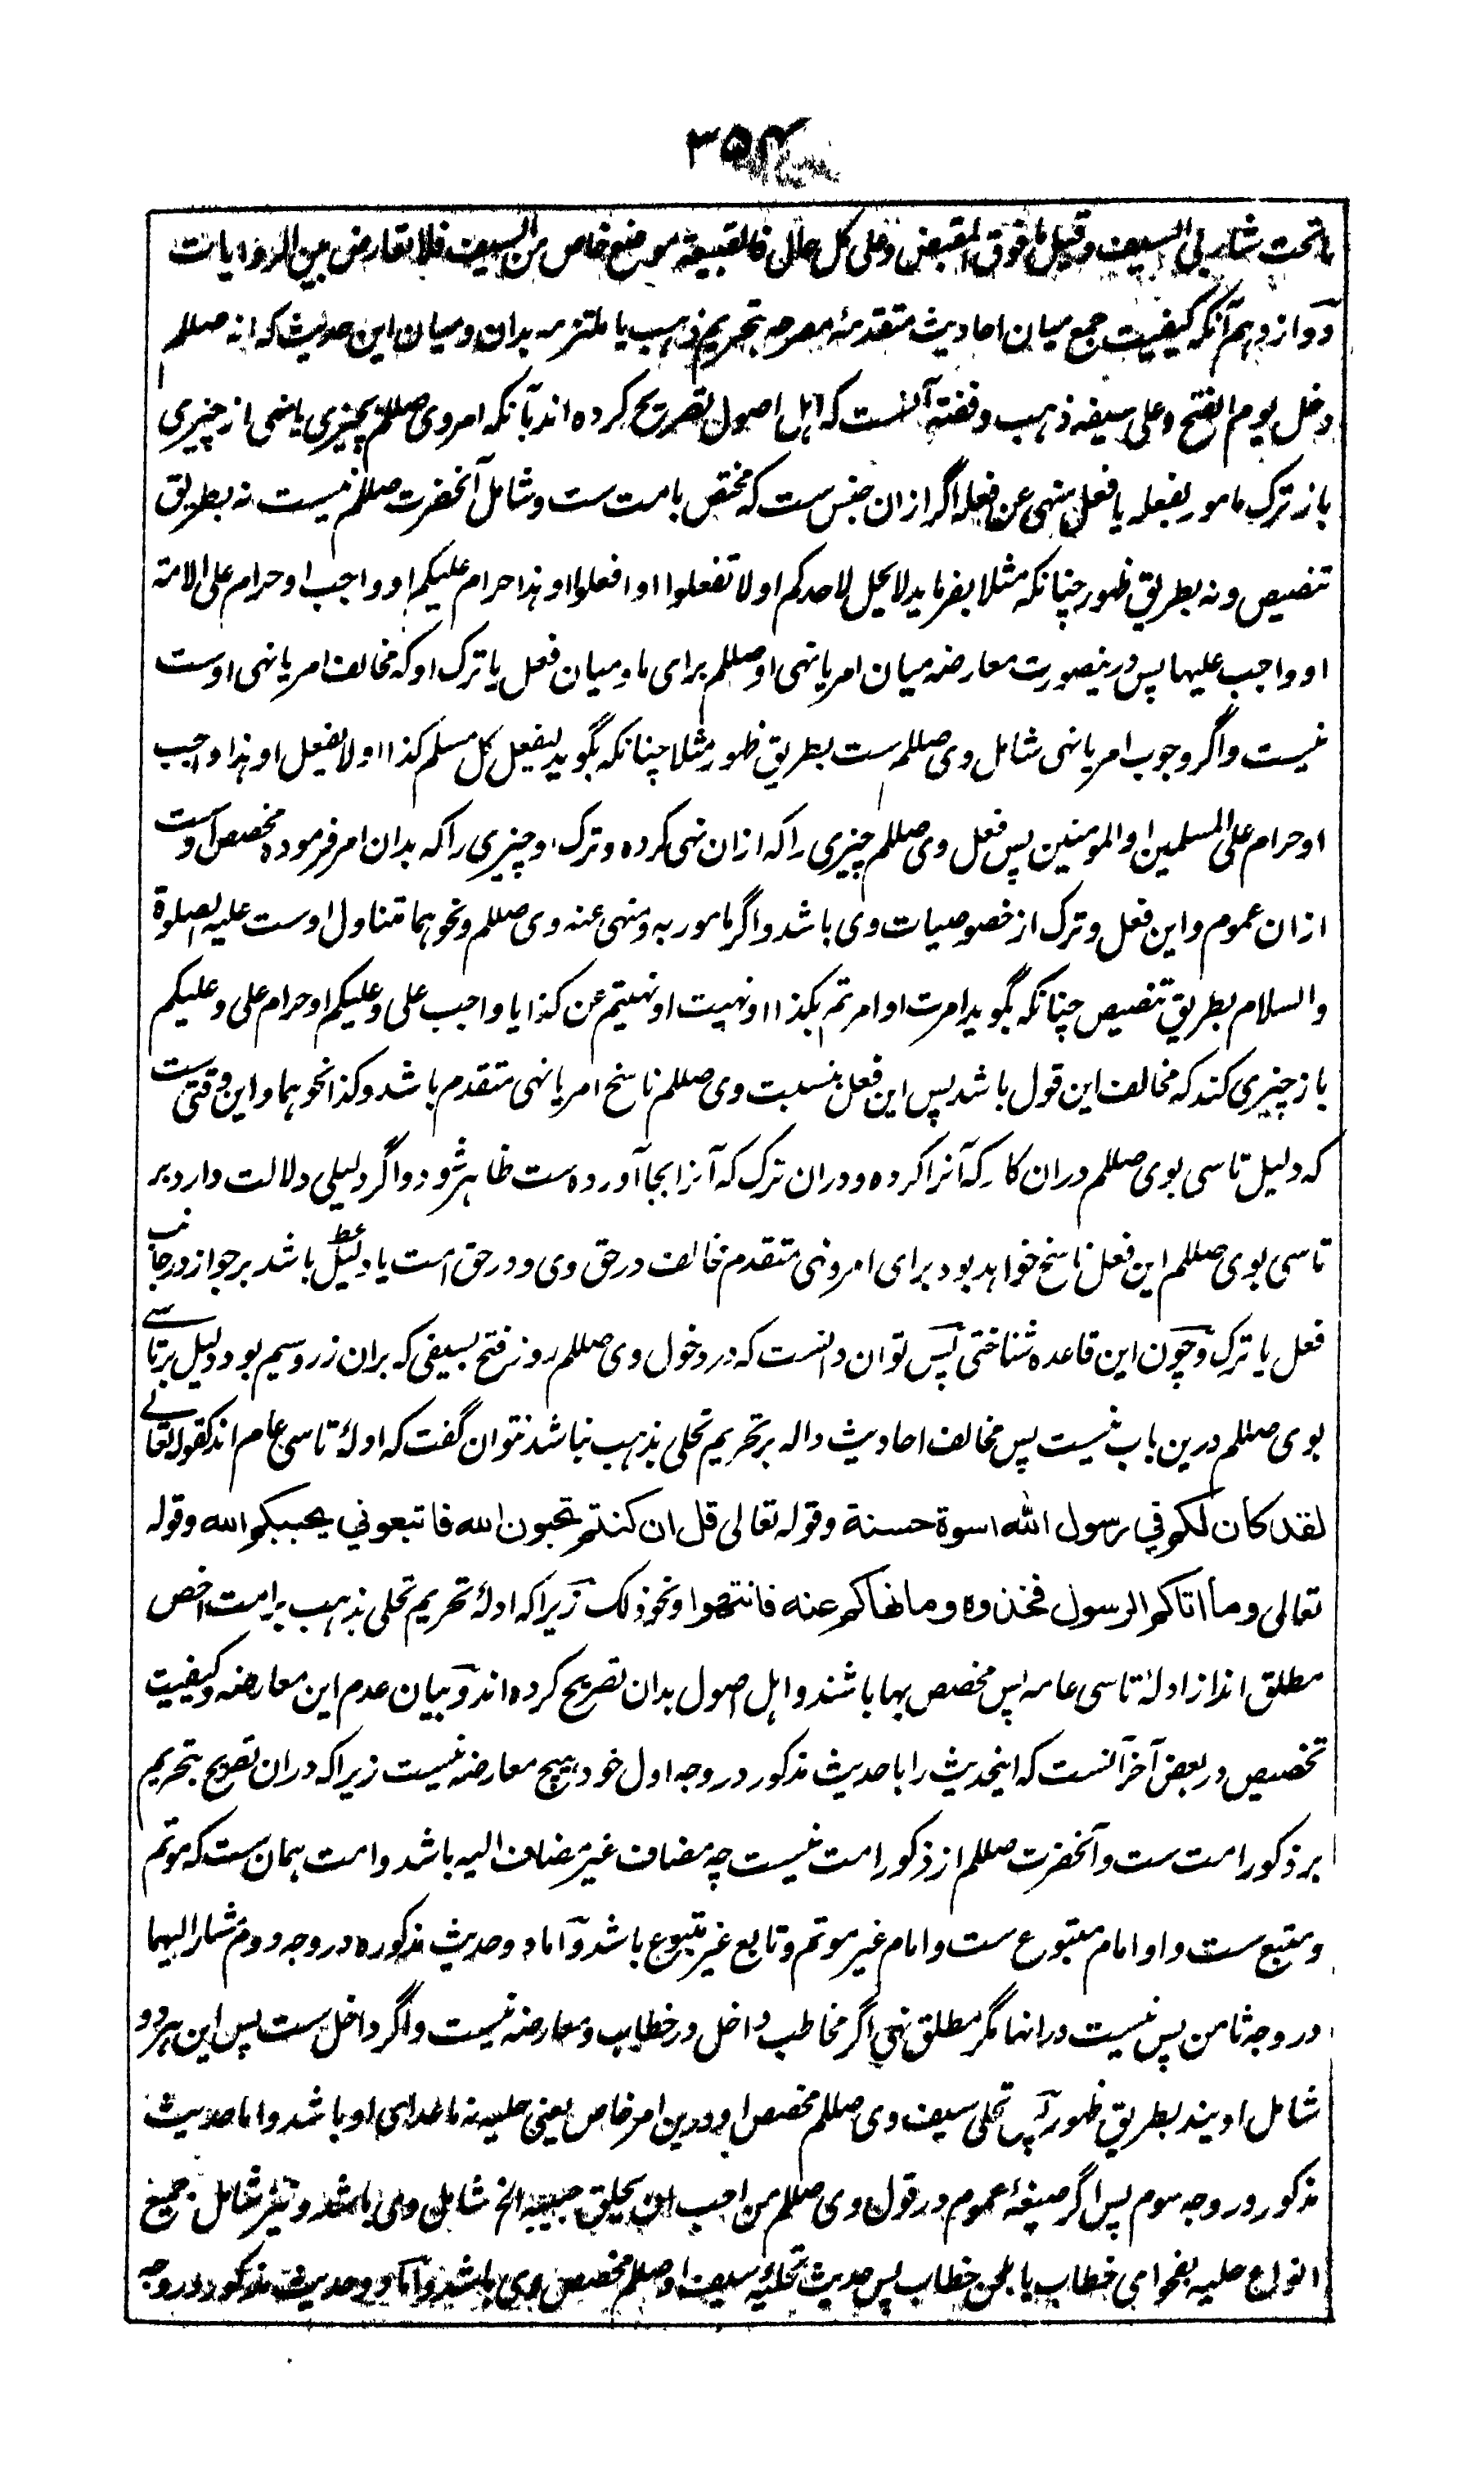 ۳۵۴
ماتحت شاربی السیف وقیل مافوق المقبض وعلی کل حال فالقبیعة موضع خاص من السیف فلا تعارض بین الروایات
دوازدهم آنکه کیفیت جمع میان احادیث متقدمهٔ مصرحه بتحریم ذهب یا ملتزمه بدان ومیان این حدیث که انه صللم
دخل یوم الفتح وعلی سیفه ذهب وفضة آنست که اهل اصول تصریح کرده اند بآنکه امر وی صللم بچیزی یا نهی از چیزی
باز ترک مامور بفعله یا فعل منهی عن فعله اگر ازان جنس ست که مختص بامت ست وشامل آنحضرت صللم نیست نه بطریق
تنصیص ونه بطریق ظهور چنانکه مثلا بفرماید لایحل لاحدکم او لا تفعلوا او افعلوا او هذا حرام علیکم او واجب او حرام علی الامة
او واجب علیها پس درینصورت معارضه میان امر یا نهی او صللم برای ما ومیان فعل یا ترک او که مخالف امر یا نهی اوست
نیست واگر وجوب امر یا نهی شامل وی صللم ست بطریق ظهور مثلا چنانکه بگوید لیفعل کل مسلم کذا او لا یفعل او هذا واجب
او حرام علی المسلمین او المومنین پس فعل وی صللم چیزی را که ازان نهی کرده وترک او چیزی را که بدان امر فرموده مخصص اوست
ازان عموم واین فعل وترک از خصوصیات وی باشد واگر مامور به ومنهی عنه وی صللم ونحوهما متناول اوست علیه الصلوة
والسلام بطریق تنصیص چنانکه بگوید امرت او امرتم بکذا او نهیت او نهیتم عن کذا یا واجب علی وعلیکم او حرام علی وعلیکم
باز چیزی کند که مخالف این قول باشد پس این فعل بنسبت وی صللم ناسخ امر یا نهی متقدم باشد وکذا نحوهما واین وقتی ست
که دلیل تاسی بوی صللم دران کار که آنرا کرده ودران ترک که آنرا بجا آورده ست ظاهر شود واگر دلیلی دلالت دارد بر
تاسی بوی صللم این فعل ناسخ خواهد بود برای امر ونهی متقدم مخالف در حق وی ودر حق امت یا دلیل باشد بر جواز در جانب
فعل یا ترک وچون این قاعده شناختی پس توان دانست که در دخول وی صللم روز فتح بسیفی که بران زر وسیم بود دلیل بر تاسی
بوی صللم درین باب نیست پس مخالف احادیث داله بر تحریم تحلی بذهب نباشد نتوان گفت که ادلهٔ تاسی عام اند کقوله تعالی
لقد کان لکم فی رسول الله اسوة حسنة وقوله تعالی قل ان کنتم تحبون الله فاتبعونی یحببکم الله وقوله
تعالی وما اتاکم الرسول فخذوه وما نهاکم عنه فانتهوا ونحو ذلک زیراکه ادلهٔ تحریم تحلی بذهب بر امت اخص
مطلق اند از ادلهٔ تاسی عامه پس مخصص بها باشند واهل اصول بدان تصریح کرده اند وبیان عدم این معارضه وکیفیت
تخصیص در بعض آخر آنست که اینحدیث را با حدیث مذکور در وجه اول خود هیچ معارضه نیست زیراکه دران تصریح بتحریم
بر ذکور امت ست وآنحضرت صللم از ذکور امت نیست چه مضاف غیر مضاف الیه باشد وامت همان ست که موتم
ومتبع ست واو امام متبوع ست وامام غیر موتم وتابع غیر متبوع باشد واما دو حدیث مذکوره در وجه دوم مشار الیهما
در وجه ثامن پس نیست درانها مگر مطلق نهی اگر مخاطب داخل در خطاب ومعارضه نیست واگر داخل ست پس این هر دو
شامل اویند بطریق ظهور پس تحلی سیف وی صللم مخصص او درین امر خاص یعنی حلیه نه ماعدای او باشد واما حدیث
مذکور در وجه سوم پس اگر صیغهٔ عموم در قول وی صللم من احب ان یحلق حبیبه الخ شامل وی باشد ونیز شامل جمیع
انواع حلیه بفحوای خطاب یا لحن خطاب پس حدیث تحلیهٔ سیف او صللم مخصص وی باشد واما دو حدیث مذکور در وجه